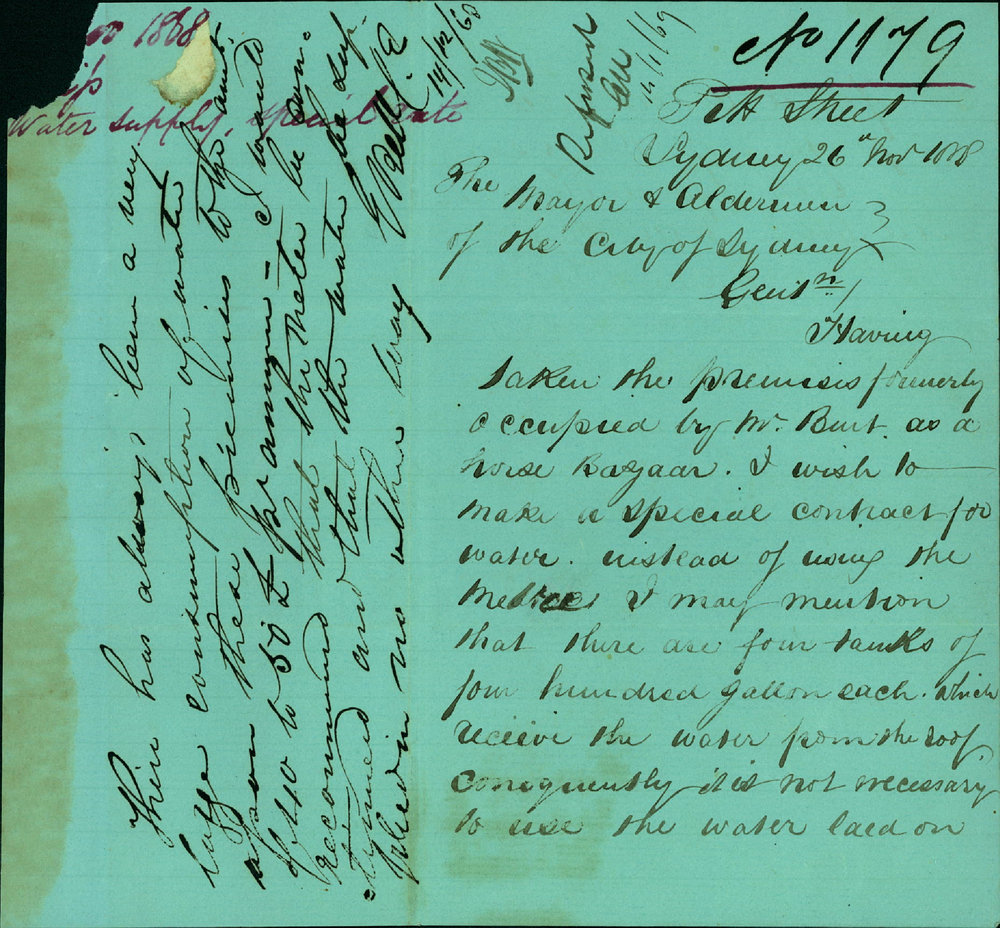 No 1179
Pitt Street
Sydney 26th Nov 1868
The Mayor & Aldermen
of the City of Sydney
Gentn/
Having
taken the premises formerly
occupied by Mr. Burt as a
horse Bazaar. I wish to
make a special contract for
water. instead of using the
I may mention
that there are four tanks of
four hundred gallon each. which
receive the water from the roof
consequently it is not necessary
to use the water laed on
1868
Water supply, special rate
There has always been a very
large consumption of water
upon these premises to the amt.
of £40 to 50 £ pr annum - I would
recommend that the meter be con-
and that the water be sup-
plied in no other way
14/12/68
14/1/69